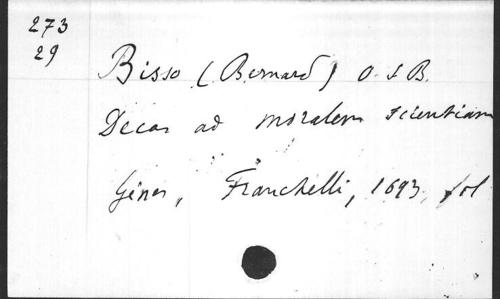 273
29
Bisso (Bernard) O.S.B.
Decas ad moralem scientiam
Gênes, Franchelli, 1693, fol